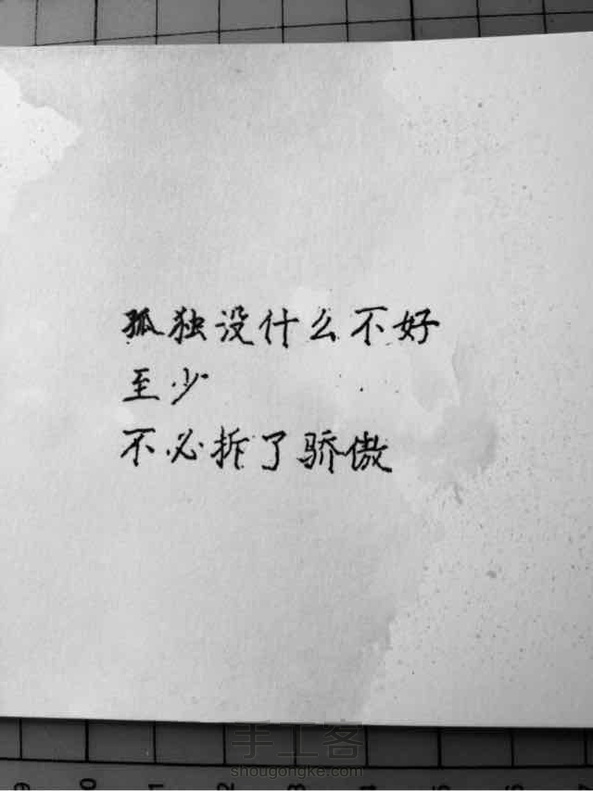 孤独没什么不好
至少
不必拆了骄傲
手工客
shougongke.com